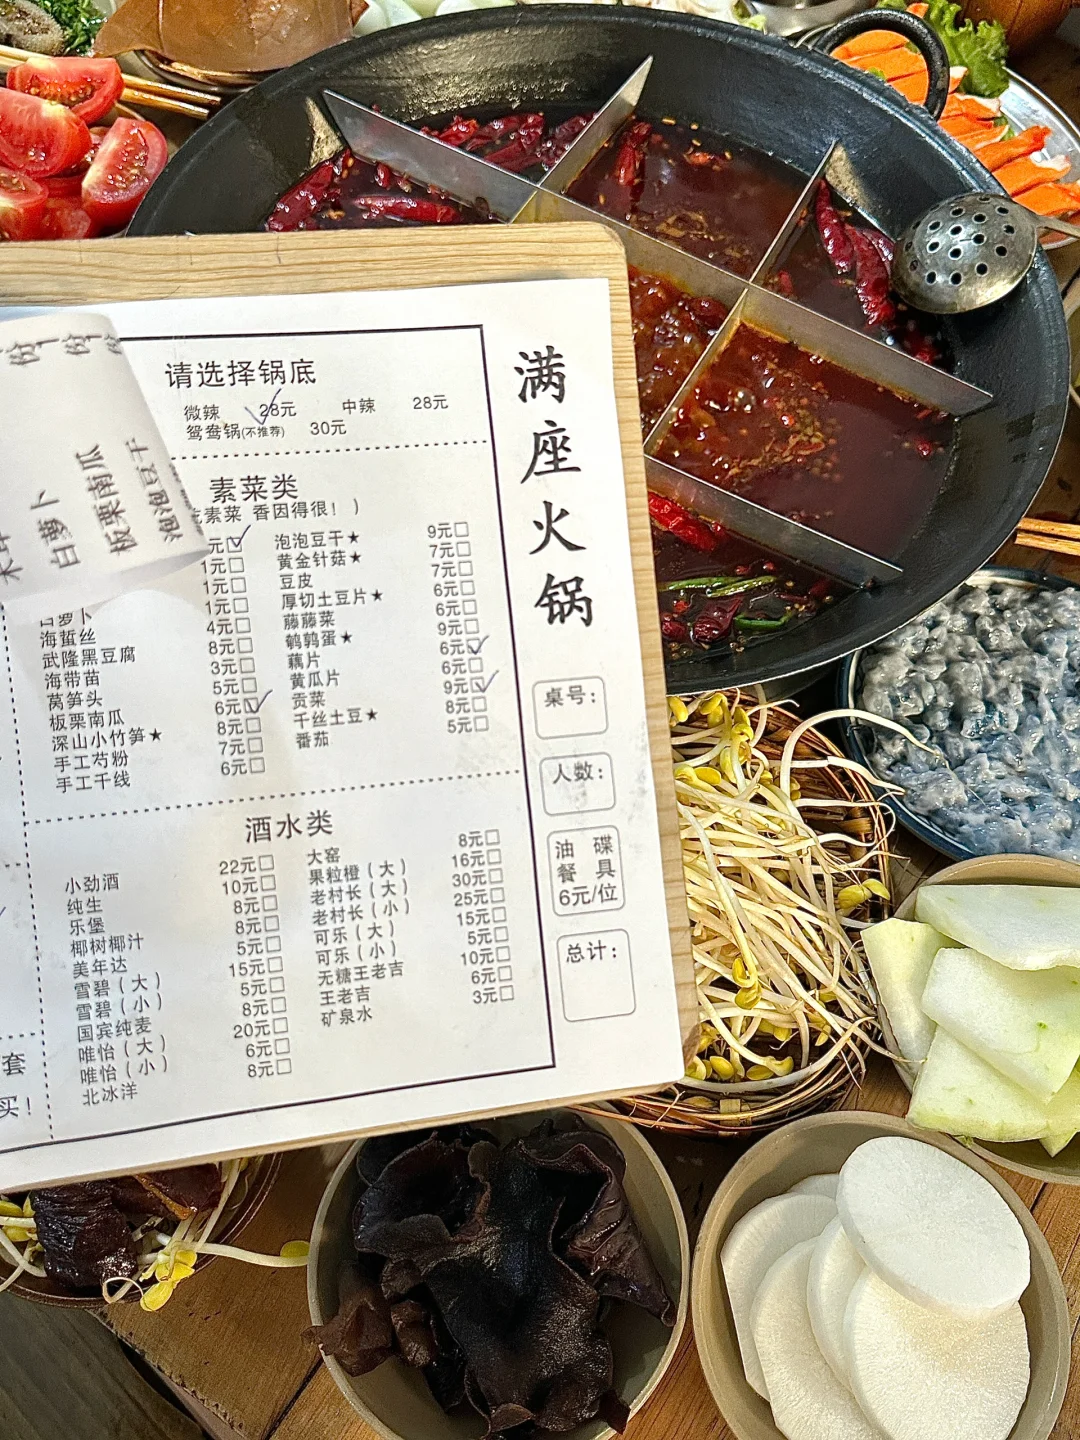 满座火锅
请选择锅底
微辣 28元 中辣 28元
鸳鸯锅(不推荐) 30元
素菜类
素菜 香因得很！）
元☐ 泡泡豆干★ 9元☐
1元☐ 黄金针菇★ 7元☐
1元☐ 豆皮 7元☐
1元☐ 厚切土豆片★ 6元☐
白萝卜 4元☐ 藤藤菜 6元☐
海蜇丝 8元☐ 鹌鹑蛋★ 9元☐
武隆黑豆腐 3元☐ 藕片 6元☐
海带苗 5元☐ 黄瓜片 6元☐
莴笋头 6元☐ 贡菜 9元☐
板栗南瓜 8元☐ 千丝土豆★ 8元☐
深山小竹笋★ 7元☐ 番茄 5元☐
手工芍粉 6元☐
手工干线
酒水类
小劲酒 22元☐ 大窑 8元☐
纯生 10元☐ 果粒橙(大) 16元☐
乐堡 8元☐ 老村长(大) 30元☐
椰树椰汁 8元☐ 老村长(小) 25元☐
美年达 5元☐ 可乐(大) 15元☐
雪碧(大) 15元☐ 可乐(小) 5元☐
雪碧(小) 5元☐ 无糖王老吉 10元☐
国宾纯麦 8元☐ 王老吉 6元☐
唯怡(大) 20元☐ 矿泉水 3元☐
唯怡(小) 6元☐
北冰洋 8元☐
桌号:
人数:
油碟
餐具
6元/位
总计:
套
买！
份
份
份
白萝卜
板栗南瓜
泡泡豆干